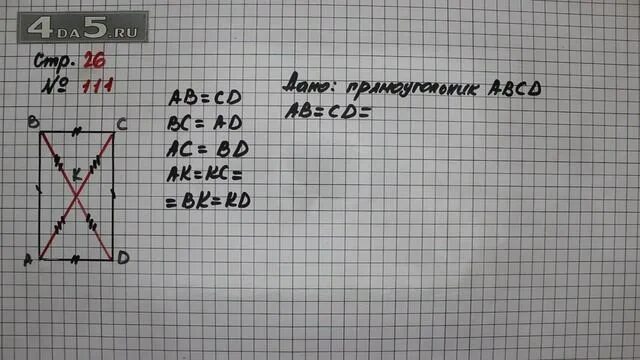 4DA5.RU
Стр. 26
№ 111
B C
K
A D
AB = CD
BC = AD
AC = BD
AK = KC =
= BK = KD
Дано: прямоугольник ABCD
AB = CD =